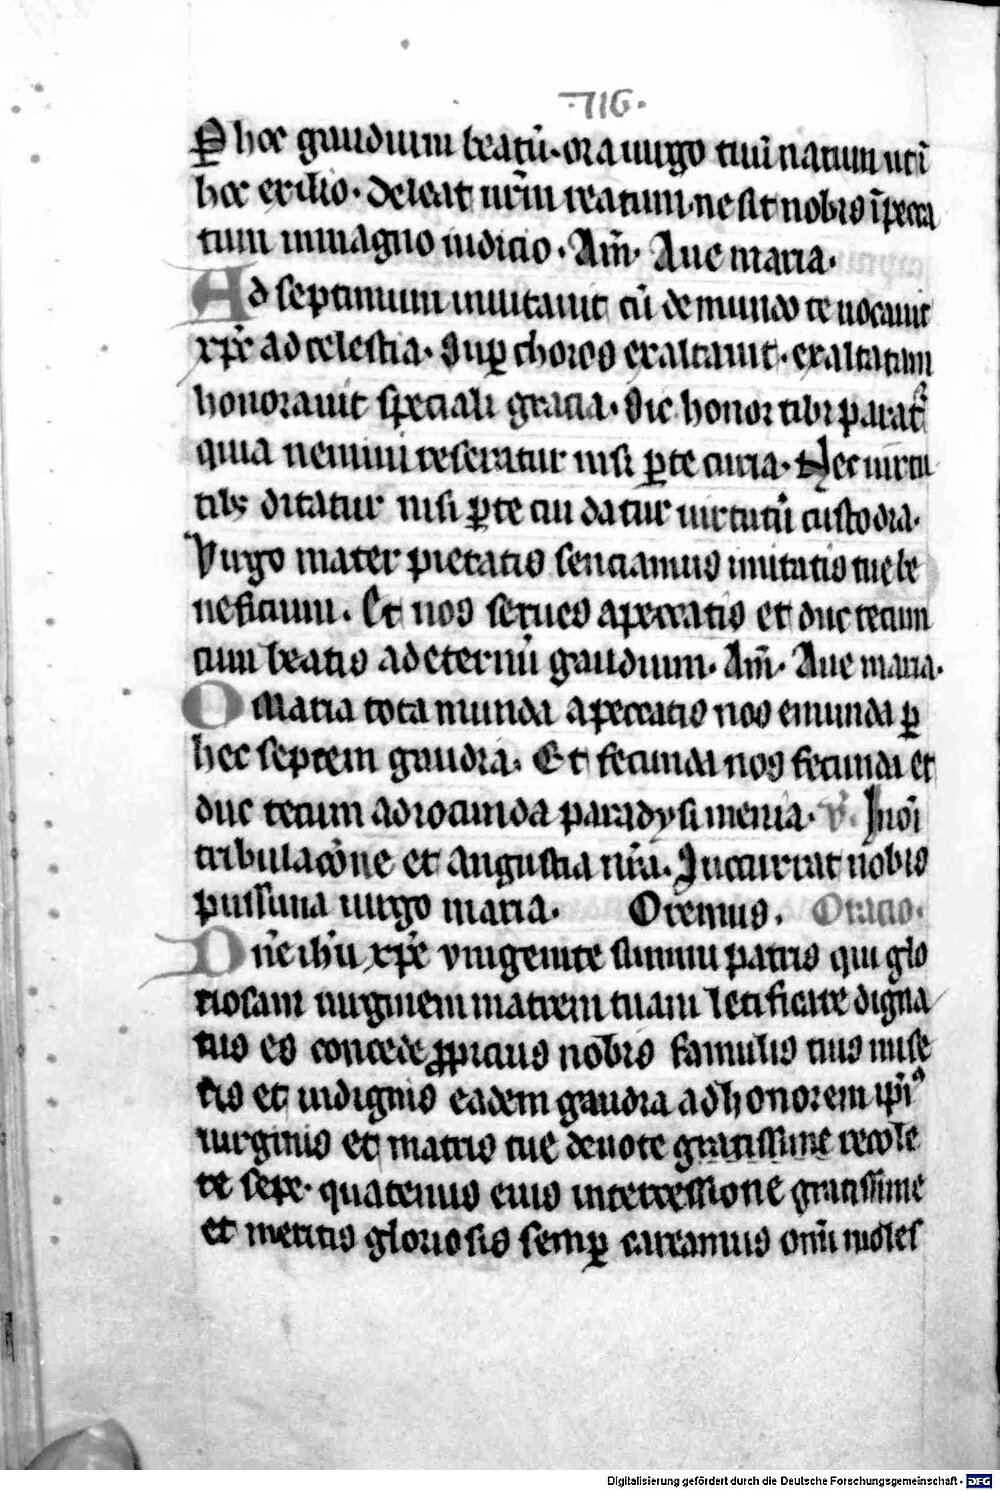 ·716·
ꝑ hoc gaudium beatū· ora uirgo tuū natum ut ī
hoc exilio· deleat nr̄m reatum ne sit nobis īpecca
tum in magno iudicio· Am̄· Aue maria·
Ad septimum inuitauit cū de mundo te uocauit
xp̄c ad celestia· Suꝑ choros exaltauit· exaltatam
honorauit speciali gracia· Sic honor tibi parat᷑
quia nemini reseratur nisi ꝑ te curia· Nec uirtu
tibꝫ ditatur nisi ꝑ te cui datur uirtutū custodia·
Virgo mater pietatis senciamus imitatis tue be
neficium· Et nos serues a peccatis et duc tecum
cum beatis ad eternū gaudium· Am̄· Aue maria·
O Maria tota munda a peccatis nos emunda ꝑ
hec septem gaudia· Et fecunda nos fecunda et
duc tecum ad iocunda paradysi menia· V̄· In oī
tribulacōne et angustia nr̄a· Succurrat nobis
puissima uirgo maria· Oremus· Oracio·
Dn̄e ihū xp̄e vnigenite summi patris qui glo
riosam uirginem matrem tuam letificare digna
tus es concede ꝓpicius nobis famulis tuis mise
ris et indignis eadem gaudia ad honorem ipī᷒
uirginis et matris tue deuote gratissime recole
re sepe· quatenus eius intercessione gratissime
et meritis gloriosis semꝑ careamus omī moles
Digitalisierung gefördert durch die Deutsche Forschungsgemeinschaft - DFG